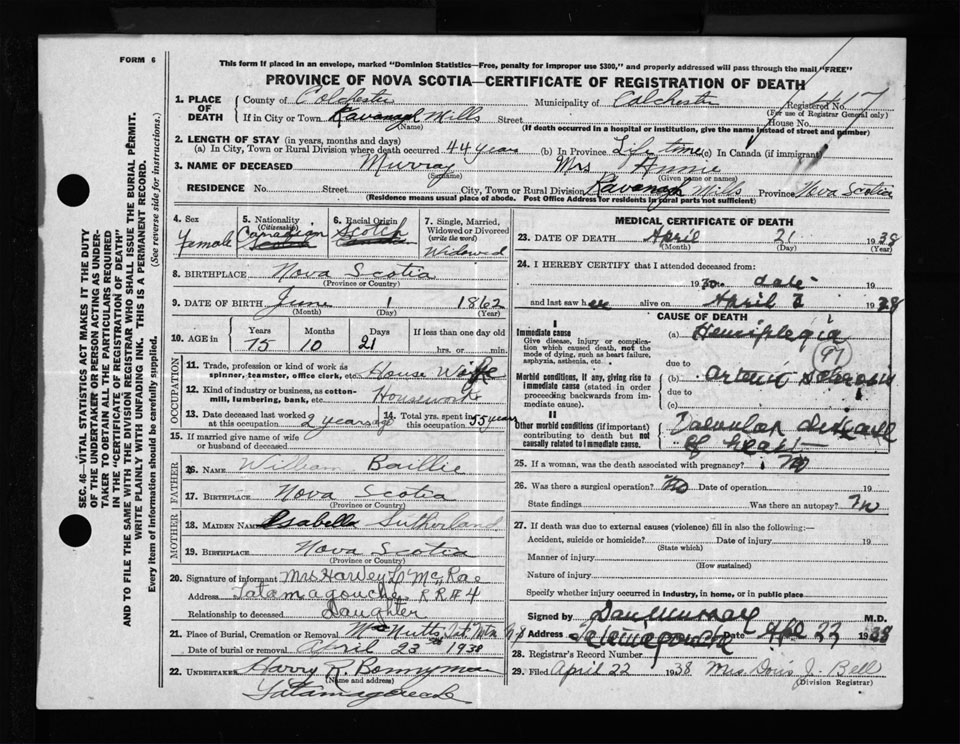 FORM 6
This form if placed in an envelope, marked "Dominion Statistics—Free, penalty for improper use $300," and properly addressed will pass through the mail "FREE"
PROVINCE OF NOVA SCOTIA—CERTIFICATE OF REGISTRATION OF DEATH
SEC. 46—VITAL STATISTICS ACT MAKES IT THE DUTY
OF THE UNDERTAKER OR PERSON ACTING AS UNDER-
TAKER TO OBTAIN ALL THE PARTICULARS REQUIRED
IN THE "CERTIFICATE OF REGISTRATION OF DEATH"
AND TO FILE THE SAME WITH THE DIVISION REGISTRAR WHO SHALL ISSUE THE BURIAL PERMIT.
WRITE PLAINLY WITH UNFADING INK. THIS IS A PERMANENT RECORD.
Every item of information should be carefully supplied. (See reverse side for instructions.)
1. PLACE OF DEATH County of Colchester Municipality of Colchester Registered No. 417
(For use of Registrar General only)
If in City or Town Kavanagh Mills Street House No.
(Name) (If death occurred in a hospital or institution, give the name instead of street and number)
2. LENGTH OF STAY (in years, months and days)
(a) In City, Town or Rural Division where death occurred 44 years (b) In Province Life time (c) In Canada (if immigrant)
3. NAME OF DECEASED Murray Mrs Annie
(Surname) (Given name or names)
RESIDENCE No. Street City, Town or Rural Division Kavanagh Mills Province Nova Scotia
(Residence means usual place of abode. Post Office Address for residents in rural parts not sufficient)
4. Sex Female
5. Nationality (Citizenship) Canadian Scotch
6. Racial Origin Scotch
7. Single, Married, Widowed or Divorced (write the word) Widowed
8. BIRTHPLACE Nova Scotia
(Province or Country)
9. DATE OF BIRTH June 1 1862
(Month) (Day) (Year)
10. AGE in Years Months Days If less than one day old
75 10 21 hrs. or min.
OCCUPATION
11. Trade, profession or kind of work as spinner, teamster, office clerk, etc. House Wife
12. Kind of industry or business, as cotton-mill, lumbering, bank, etc. Housework
13. Date deceased last worked at this occupation 2 years ago 14. Total yrs. spent in this occupation 55 years
15. If married give name of wife or husband of deceased
FATHER
16. NAME William Baillie
17. BIRTHPLACE Nova Scotia
(Province or Country)
MOTHER
18. MAIDEN NAME Isabella Sutherland
19. BIRTHPLACE Nova Scotia
(Province or Country)
20. Signature of informant Mrs Harvey D McRae
Address Tatamagouche RR#4
Relationship to deceased Daughter
21. Place of Burial, Cremation or Removal McNutts
Date of burial or removal April 23 1938
22. UNDERTAKER Harry R. Bonnyman
(Name and address)
Tatamagouche
MEDICAL CERTIFICATE OF DEATH
23. DATE OF DEATH April 21 1938
(Month) (Day) (Year)
24. I HEREBY CERTIFY that I attended deceased from:
1930 to date 19
and last saw her alive on April 1938
CAUSE OF DEATH
I
Immediate cause (a) Hemiplegia
Give disease, injury or complication which caused death, not the mode of dying, such as heart failure, asphyxia, asthenia, etc. (97)
due to
Morbid conditions, if any, giving rise to immediate cause (stated in order proceeding backwards from immediate cause). (b) Arterio Sclerosis
due to
(c)
II
Other morbid conditions (if important) contributing to death but not causally related to immediate cause. Valvular disease of heart
25. If a woman, was the death associated with pregnancy? No
26. Was there a surgical operation? No Date of operation 19
State findings Was there an autopsy? No
27. If death was due to external causes (violence) fill in also the following:—
Accident, suicide or homicide? Date of injury 19
(State which)
Manner of injury
(How sustained)
Nature of injury
Specify whether injury occurred in industry, in home, or in public place
Signed by Dan Murray M.D.
Address Tatamagouche Date Apl 23 1938
28. Registrar's Record Number
29. Filed April 22 1938 Mrs Doris J. Bell
(Division Registrar)